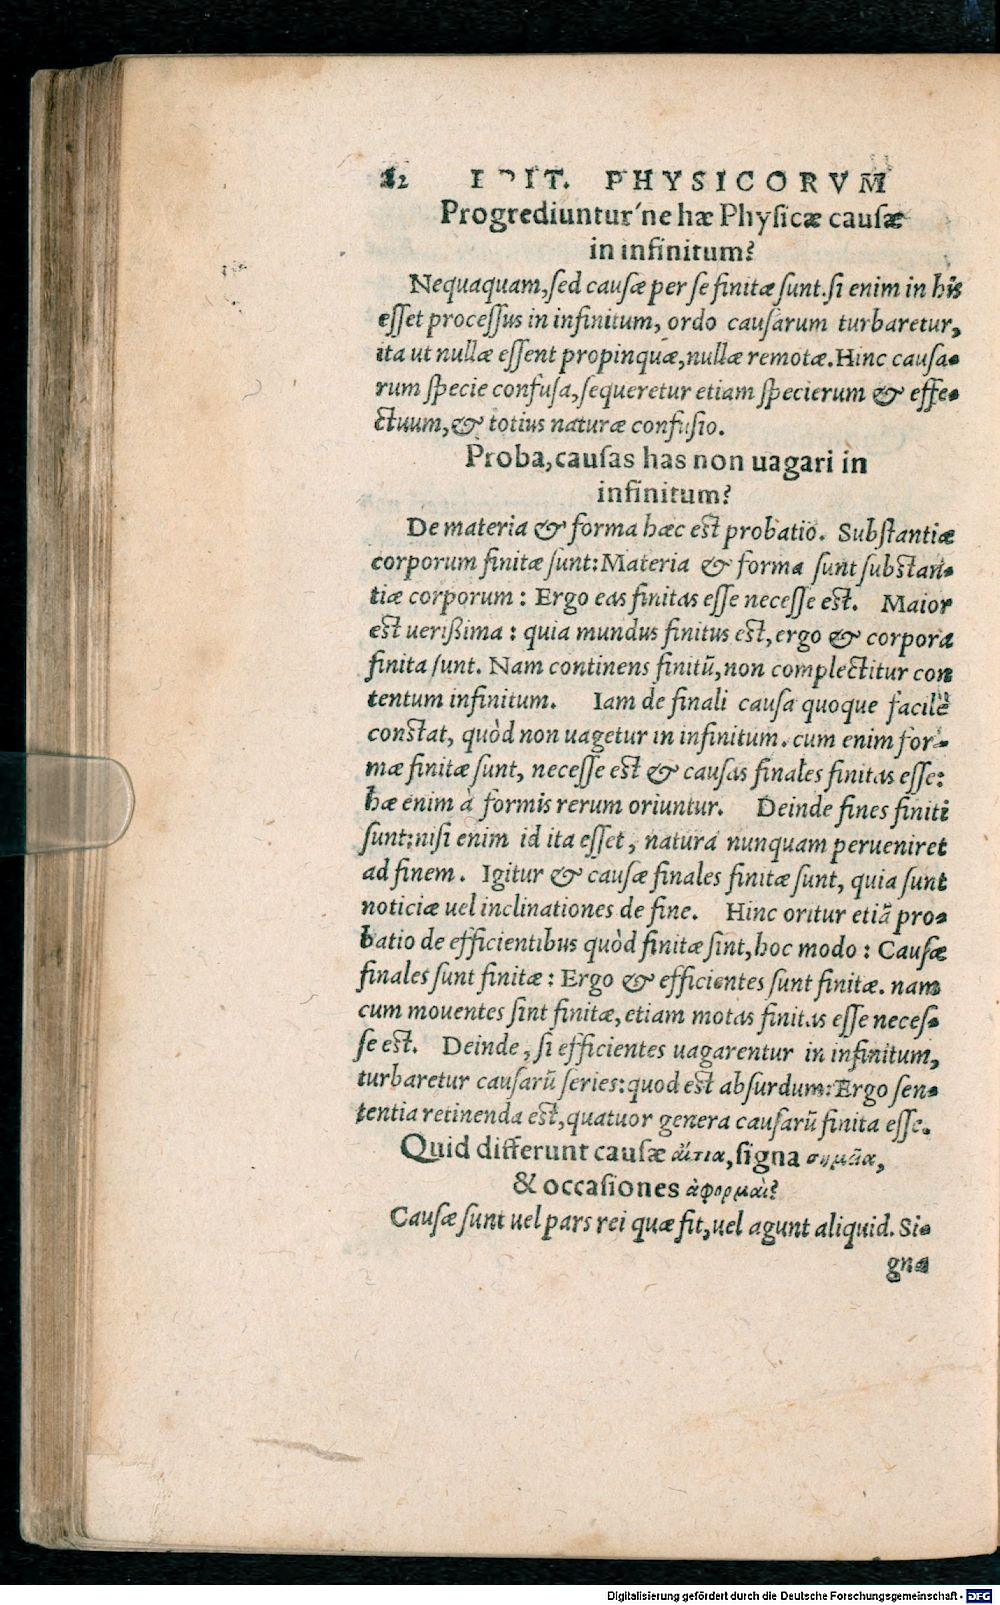 82 EPIT. PHYSICORVM
Progrediuntur'ne hæ Physicæ causæ
in infinitum?
Nequaquam, sed causæ per se finitæ sunt. si enim in his
esset processus in infinitum, ordo causarum turbaretur,
ita ut nullæ essent propinquæ, nullæ remotæ. Hinc causa-
rum specie confusa, sequeretur etiam specierum & effe-
ctuum, & totius naturæ confusio.
Proba, causas has non uagari in
infinitum?
De materia & forma hæc est probatio. Substantiæ
corporum finitæ sunt: Materia & forma sunt substan-
tiæ corporum: Ergo eas finitas esse necesse est. Maior
est uerißima: quia mundus finitus est, ergo & corpora
finita sunt. Nam continens finitũ, non complectitur con
tentum infinitum. Iam de finali causa quoque facilè
constat, quòd non uagetur in infinitum. cum enim for-
mæ finitæ sunt, necesse est & causas finales finitas esse:
hæ enim à formis rerum oriuntur. Deinde fines finiti
sunt: nisi enim id ita esset, natura nunquam perueniret
ad finem. Igitur & causæ finales finitæ sunt, quia sunt
noticiæ uel inclinationes de fine. Hinc oritur etiã pro-
batio de efficientibus quòd finitæ sint, hoc modo: Causæ
finales sunt finitæ: Ergo & efficientes sunt finitæ. nam
cum mouentes sint finitæ, etiam motas finitas esse neces-
se est. Deinde, si efficientes uagarentur in infinitum,
turbaretur causarũ series: quod est absurdum: Ergo sen-
tentia retinenda est, quatuor genera causarũ finita esse.
Quid differunt causæ αἴτια, signa σημεῖα,
& occasiones ἀφορμαὶ?
Causæ sunt uel pars rei quæ fit, uel agunt aliquid. Si-
gna
Digitalisierung gefördert durch die Deutsche Forschungsgemeinschaft - DFG